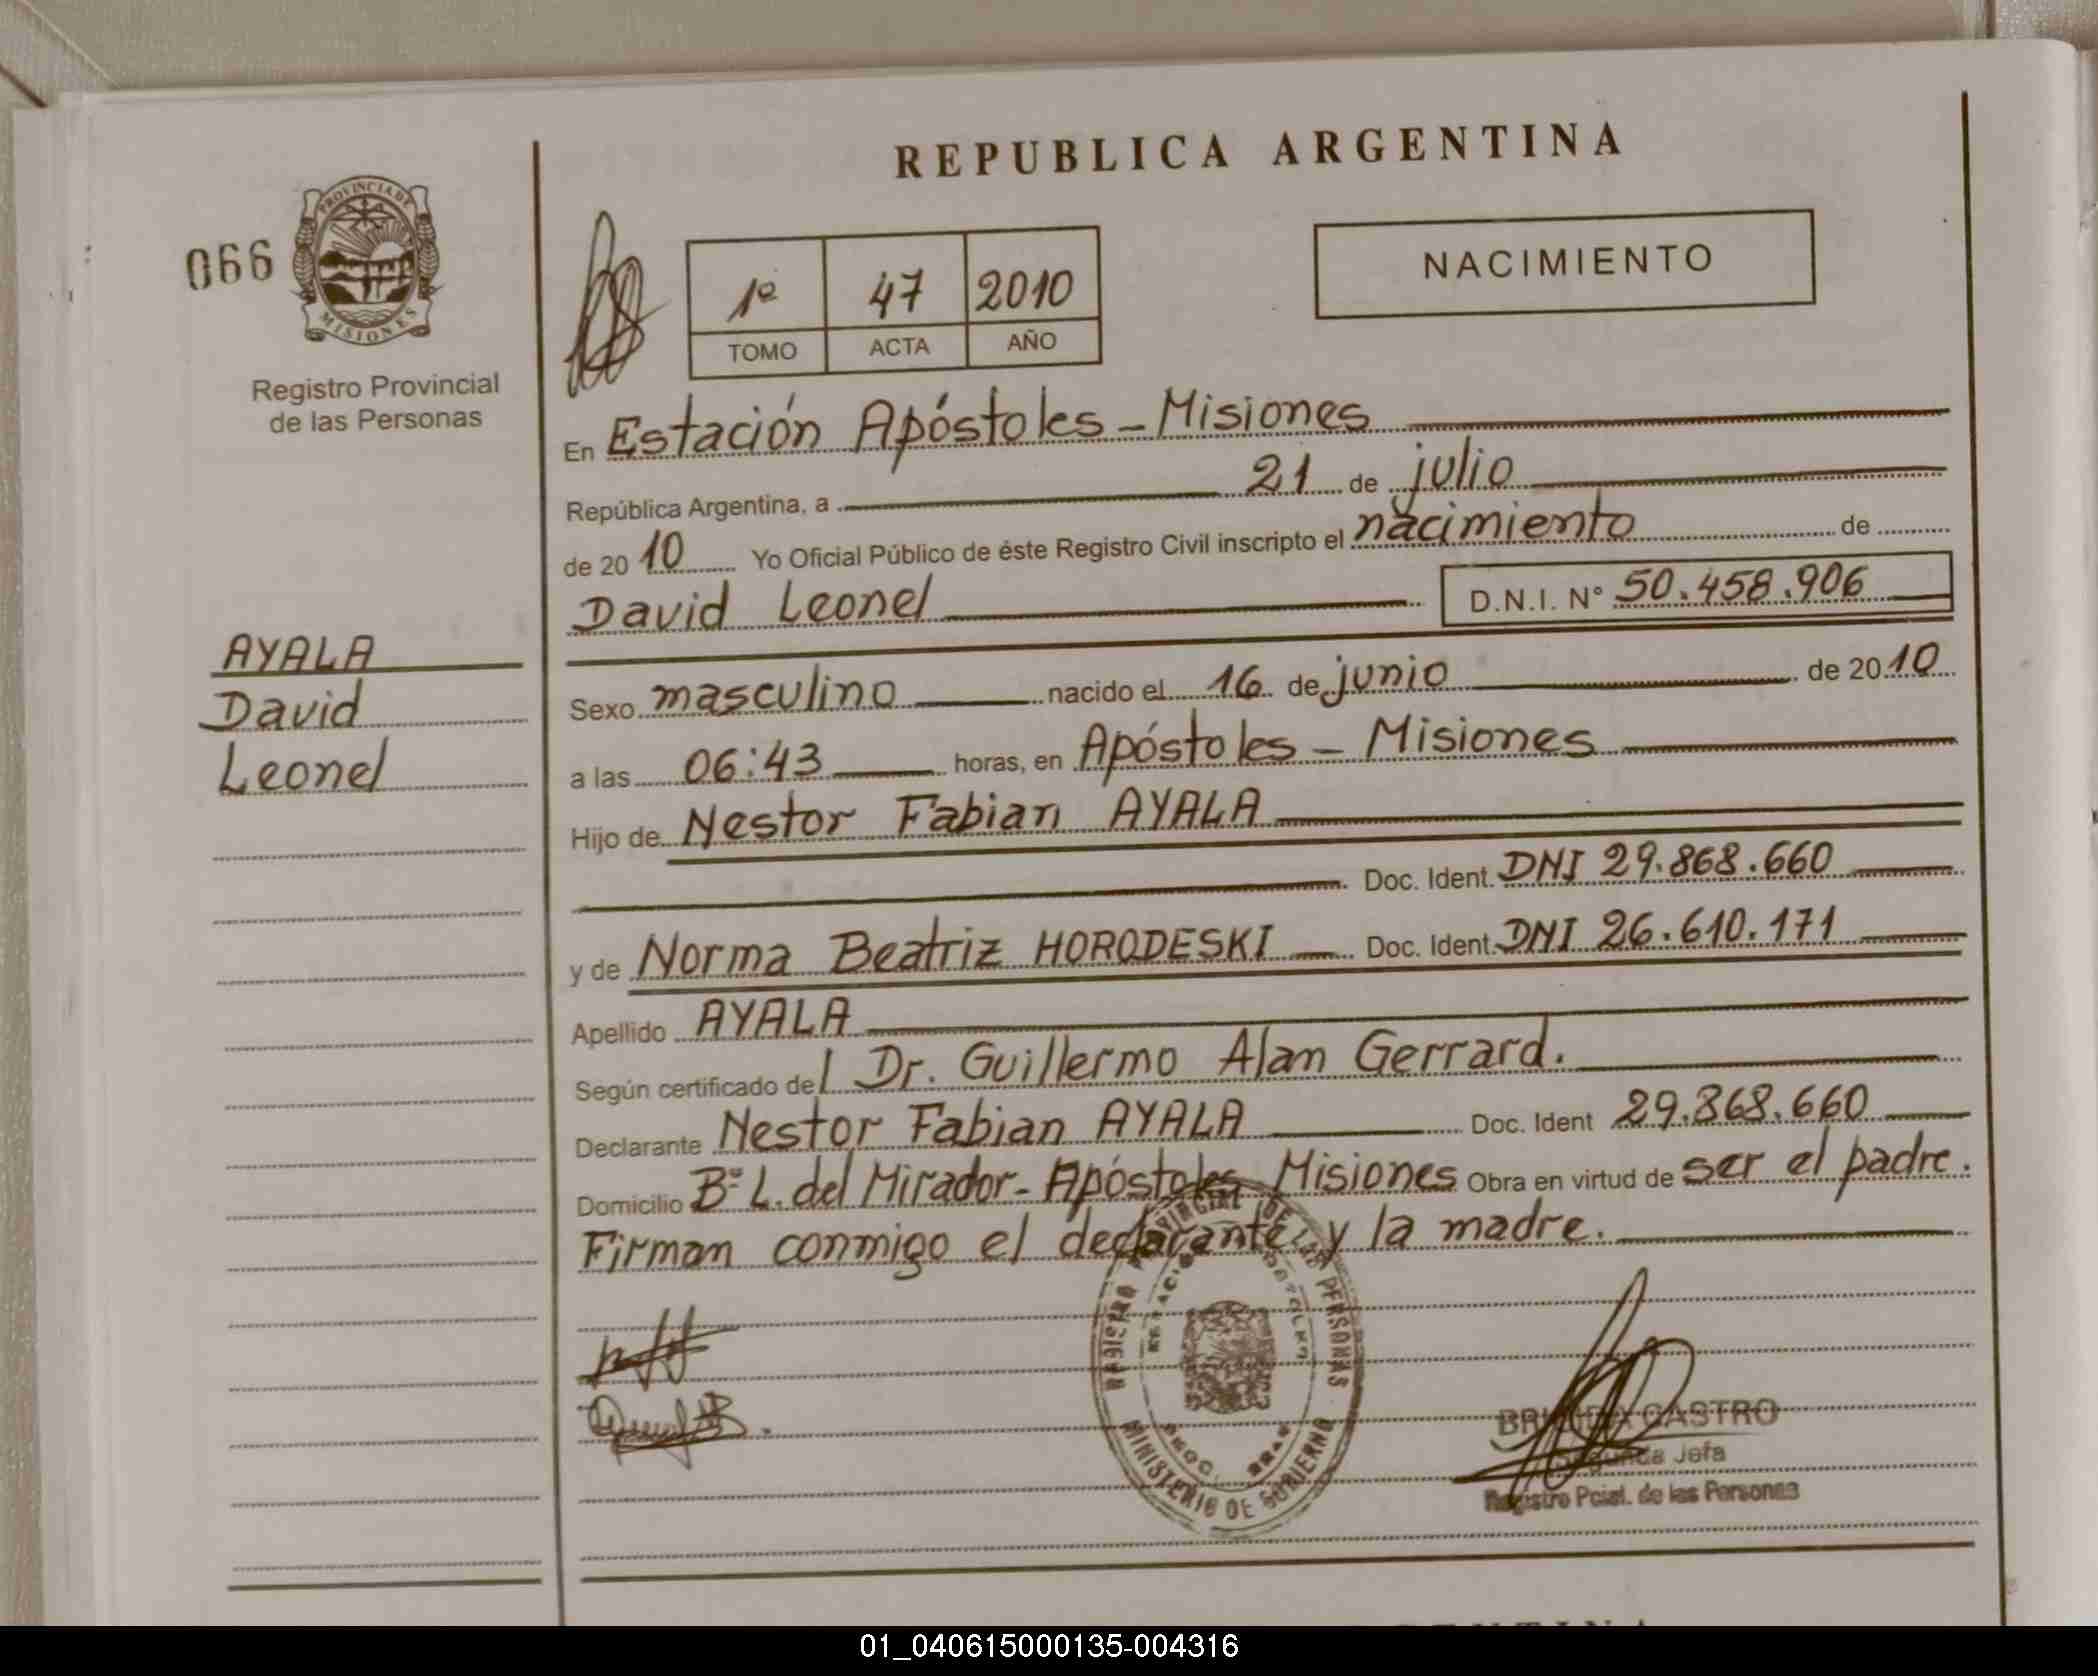 REPUBLICA ARGENTINA
066
PROVINCIA DE
MISIONES
Registro Provincial
de las Personas
1º 47 2010
TOMO ACTA AÑO
NACIMIENTO
En Estación Apóstoles - Misiones
República Argentina, a 21 de julio
de 2010 Yo Oficial Público de éste Registro Civil inscripto el nacimiento de
David Leonel D.N.I. N° 50.458.906
AYALA
David
Leonel
Sexo masculino nacido el 16 de junio de 2010
a las 06:43 horas, en Apóstoles - Misiones
Hijo de Nestor Fabian AYALA
Doc. Ident. DNI 29.868.660
y de Norma Beatriz HORODESKI Doc. Ident. DNI 26.610.171
Apellido AYALA
Según certificado del Dr. Guillermo Alan Gerrard.
Declarante Nestor Fabian AYALA Doc. Ident 29.868.660
Domicilio Bº L. del Mirador - Apóstoles Misiones Obra en virtud de ser el padre.
Firman conmigo el declarante y la madre.
REGISTRO PROVINCIAL DE LAS PERSONAS
MINISTERIO DE GOBIERNO
CASTRO
Segunda Jefa
Registro Pcial. de las Personas
01_040615000135-004316